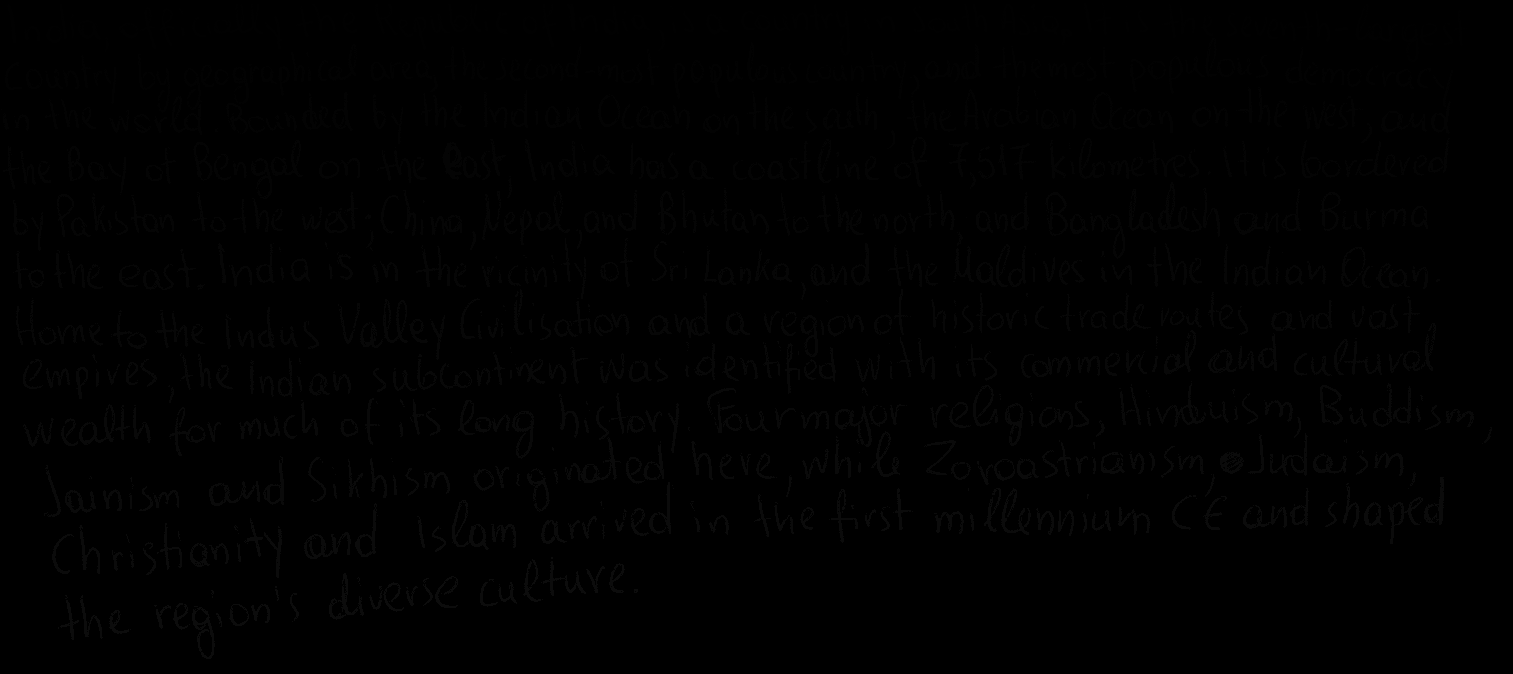 country by geographical area, the second most populous country, and the most populous democracy
in the world. Bounded by the Indian Ocean on the south, the Arabian Ocean on the west, and
the Bay of Bengal on the East, India has a coastline of 7,517 kilometres. It is bordered
by Pakistan to the west; China, Nepal, and Bhutan to the north, and Bangladesh and Burma
to the east. India is in the vicinity of Sri Lanka, and the Maldives in the Indian Ocean.
Home to the Indus Valley Civilisation and a region of historic trade routes and vast
empires, the Indian subcontinent was identified with its commercial and cultural
wealth for much of its long history. Four major religions, Hinduism, Buddism,
Jainism and Sikhism originated here, while Zoroastrianism, Judaism,
Christianity and Islam arrived in the first millennium CE and shaped
the region's diverse culture.